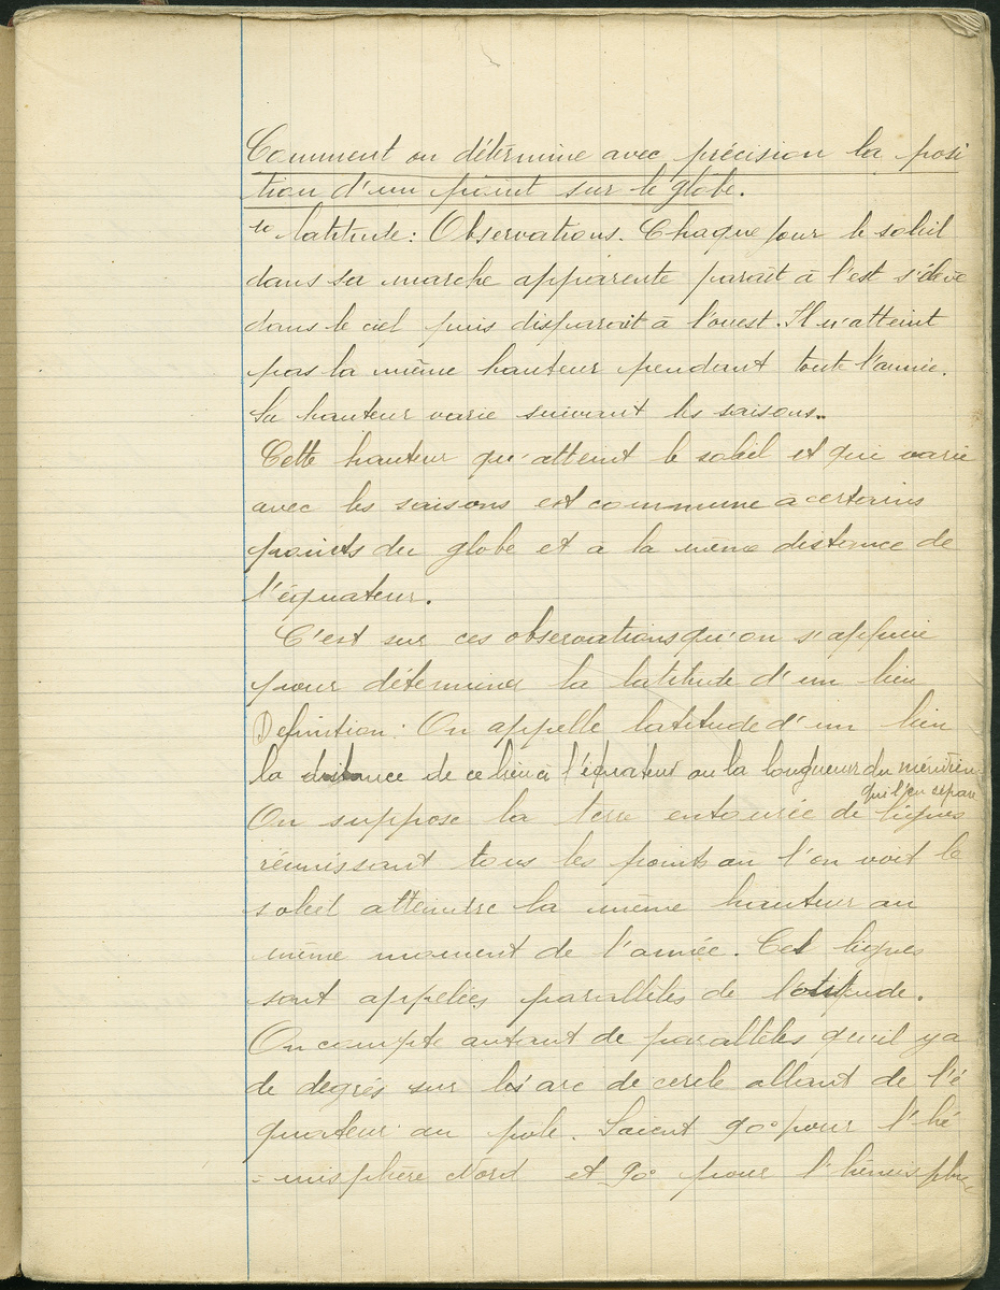 Comment on détermine avec précision la posi
tion d'un point sur le globe.
1º latitude : Observations. Chaque jour le soleil
dans sa marche apparente parait à l'est s'élève
dans le ciel puis disparait à l'ouest. Il n'atteint
pas la même hauteur pendant toute l'année.
Sa hauteur varie suivant les saisons.
Cette hauteur qu'atteint le soleil et qui varie
avec les saisons est commune à certains
points du globe et à la même distance de
l'équateur.
C'est sur ces observations qu'on s'appuie
pour déterminer la latitude d'un lieu
Definition : On appelle latitude d'un lieu
la distance de ce lieu à l'équateur ou la longueur du méridien
qui l'en separe
On suppose la terre entourée de lignes
réunissant tous les points où l'on voit le
soleil atteindre la même hauteur au
même moment de l'année. Ces lignes
sont appelées parallèles de latitude.
On compte autant de parallèles qu'il y a
de degrés sur l'arc de cercle allant de l'é
quateur au pole. Soient 90° pour l'hé
-misphère Nord et 90° pour l'hémisphère